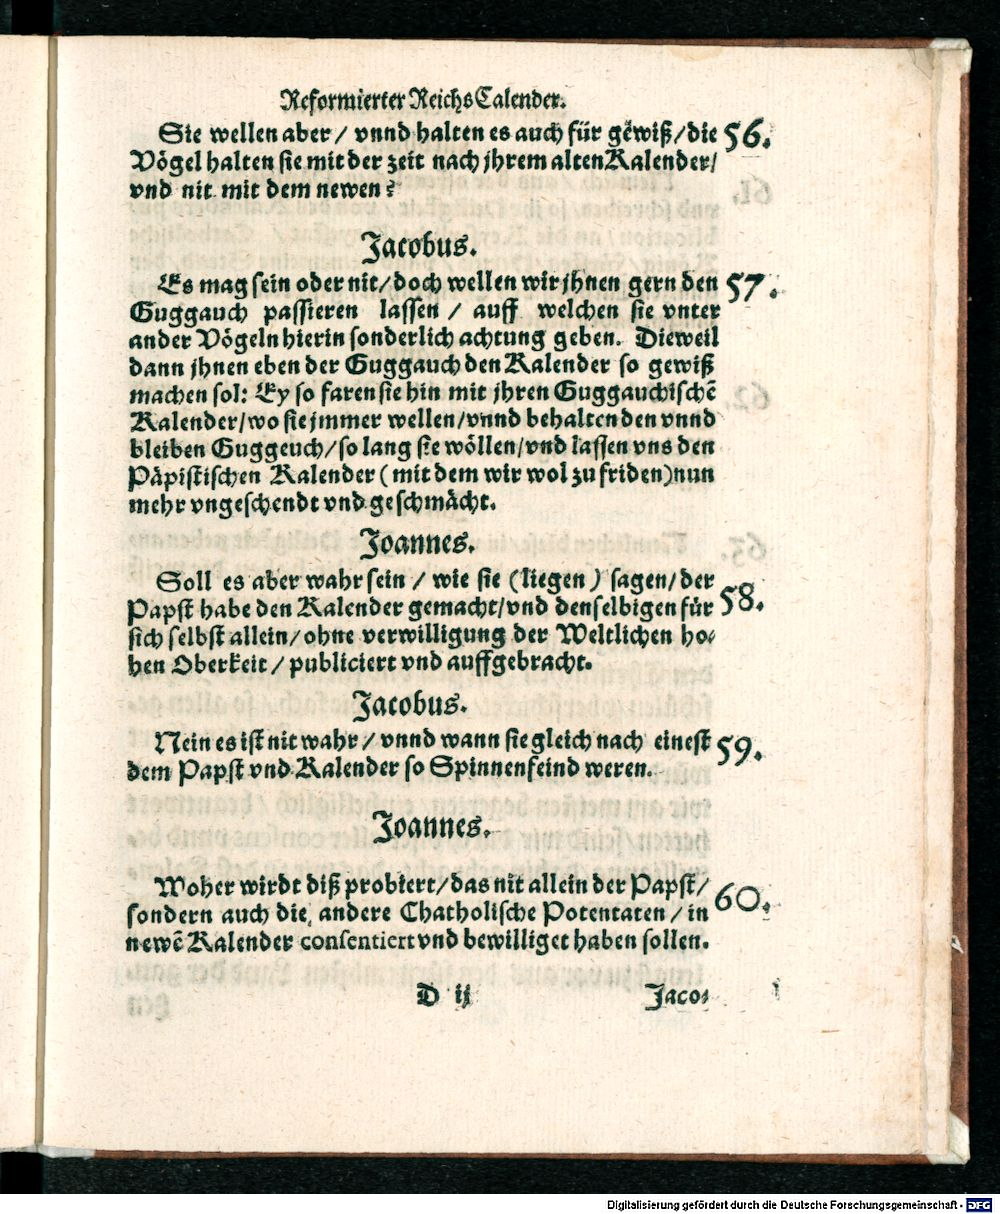 Reformierter Reichs Calender.
Sie wellen aber / vnnd halten es auch für gewiß / die 56.
Vögel halten sie mit der zeit nach jhrem alten Kalender /
vnd nit mit dem newen?
Jacobus.
Es mag sein oder nit / doch wellen wir jhnen gern den 57.
Guggauch passieren lassen / auff welchen sie vnter
ander Vögeln hierin sonderlich achtung geben. Dieweil
dann jhnen eben der Guggauch den Kalender so gewiß
machen sol: Ey so faren sie hin mit jhren Guggauchischē
Kalender / wo sie jmmer wellen / vnnd behalten den vnnd
bleiben Guggeuch / so lang sie wöllen / vnd lassen vns den
Päpistischen Kalender ( mit dem wir wol zu friden ) nun
mehr vngeschendt vnd geschmächt.
Joannes.
Soll es aber wahr sein / wie sie (liegen) sagen / der
Papst habe den Kalender gemacht / vnd denselbigen für 58.
sich selbst allein / ohne verwilligung der Weltlichen ho-
hen Oberkeit / publiciert vnd auffgebracht.
Jacobus.
Nein es ist nit wahr / vnnd wann sie gleich nach einest 59.
dem Papst vnd Kalender so Spinnenfeind weren.
Joannes.
Woher wirdt diß probiert / das nit allein der Papst /
sondern auch die andere Chatholische Potentaten / in 60.
newē Kalender consentiert vnd bewilliget haben sollen.
D ij Jaco-
Digitalisierung gefördert durch die Deutsche Forschungsgemeinschaft - DFG